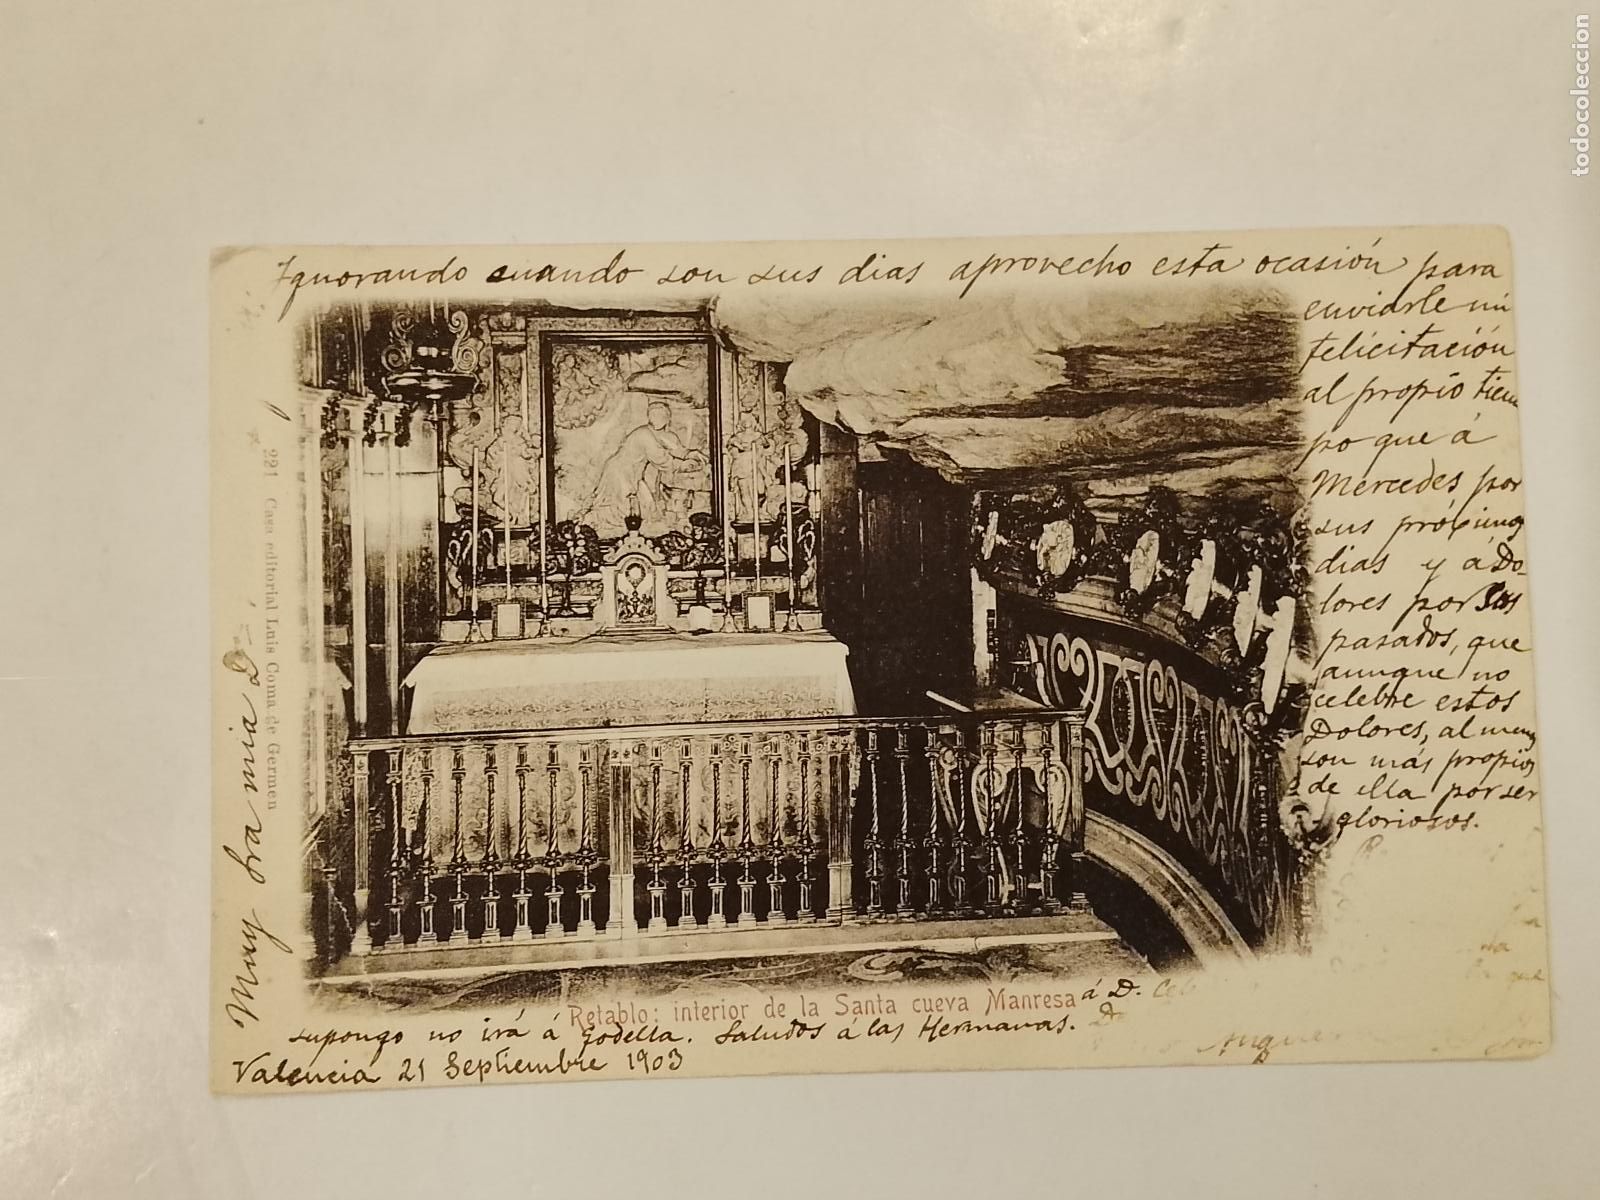 todocoleccion
Ignorando cuando son sus dias aprovecho esta ocasión para
enviarle mi
felicitación
al propio tiem
po que á
Mercedes por
sus próximos
dias y á Do-
lores por sus
pasados, que
aunque no
celebre estos
Dolores, al menos
son más propios
de ella por ser
gloriosos.
221 Casa editorial Luis Coma de Germen
Muy Sra mia
Retablo: interior de la Santa cueva Manresa
á D.
supongo no irá á Godella. Saludos á las Hermanas.
Valencia 21 Septiembre 1903